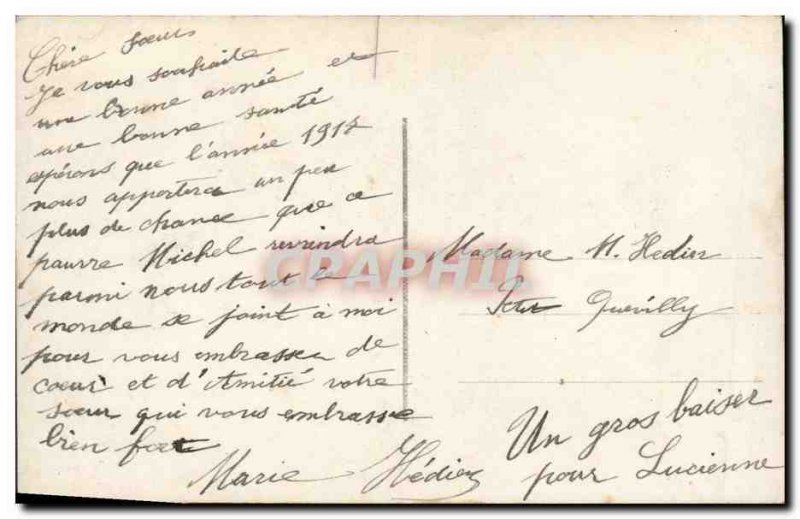 Chère sœur
Je vous souhaite
une bonne année et
une bonne santé
espérons que l'année 1917
nous apportera un peu
plus de chance que ce
pauvre Michel reviendra
parmi nous tout le
monde se joint à moi
pour vous embrasser de
cœur et d'Amitié votre
sœur qui vous embrasse
bien fort
Marie Hédin
CPAPHIL
Madame H. Hedin
Petit Quevilly
Un gros baiser
pour Lucienne